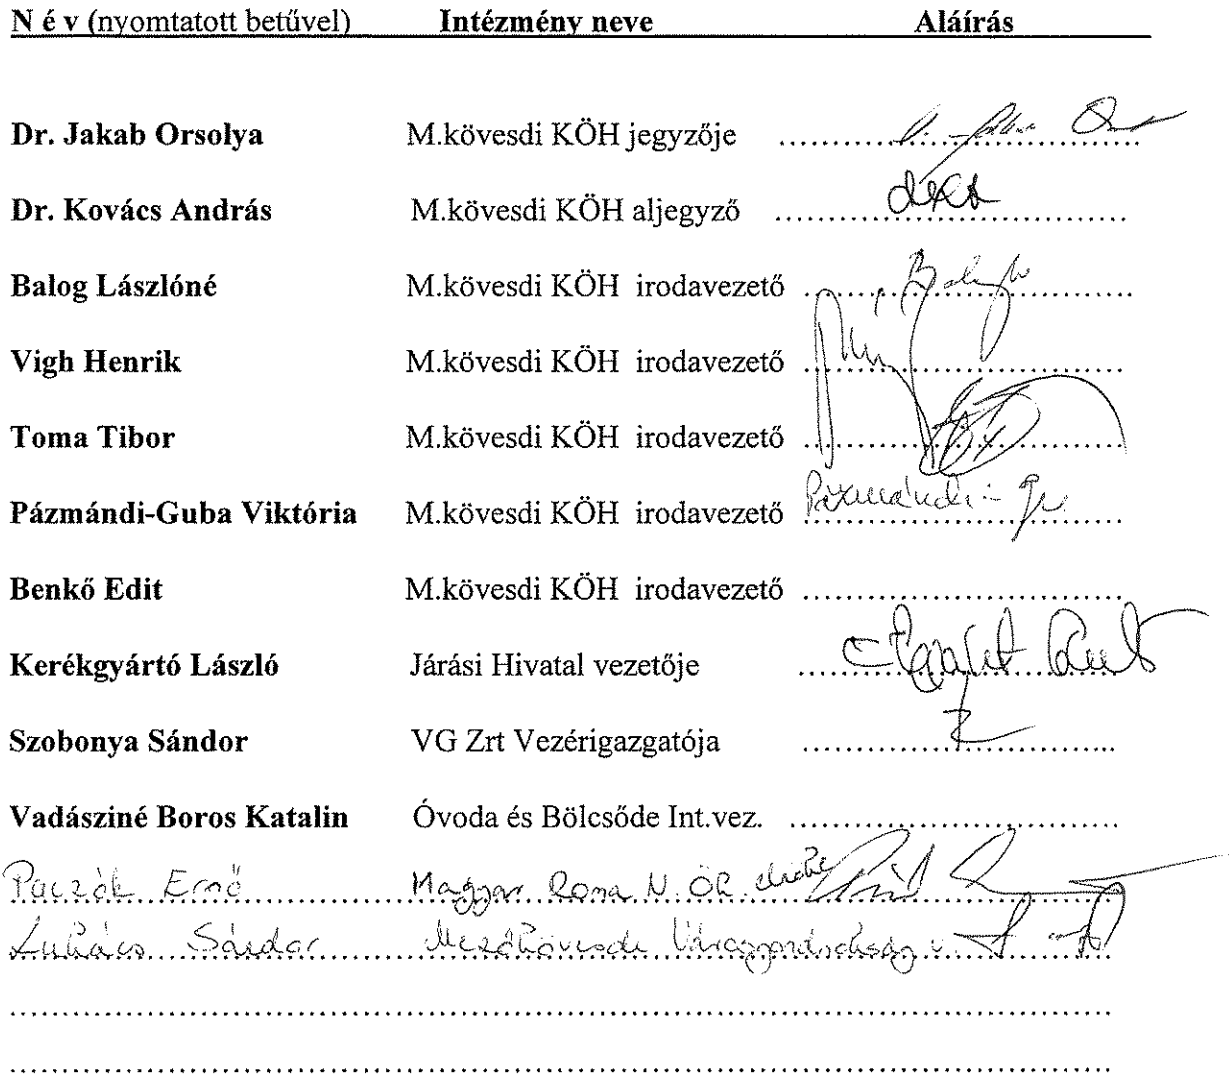 N é v (nyomtatott betűvel) Intézmény neve Aláírás
Dr. Jakab Orsolya M.kövesdi KÖH jegyzője ........................................
Dr. Kovács András M.kövesdi KÖH aljegyző ........................................
Balog Lászlóné M.kövesdi KÖH irodavezető ........................................
Vigh Henrik M.kövesdi KÖH irodavezető ........................................
Toma Tibor M.kövesdi KÖH irodavezető ........................................
Pázmándi-Guba Viktória M.kövesdi KÖH irodavezető Pázmándi-
Benkő Edit M.kövesdi KÖH irodavezető ........................................
Kerékgyártó László Járási Hivatal vezetője ........................................
Szobonya Sándor VG Zrt Vezérigazgatója ........................................
Vadásziné Boros Katalin Óvoda és Bölcsőde Int.vez. ........................................
Paczók Ernő Magyar Roma N. ÖR.
Lukács Sándor Mezőkövesdi